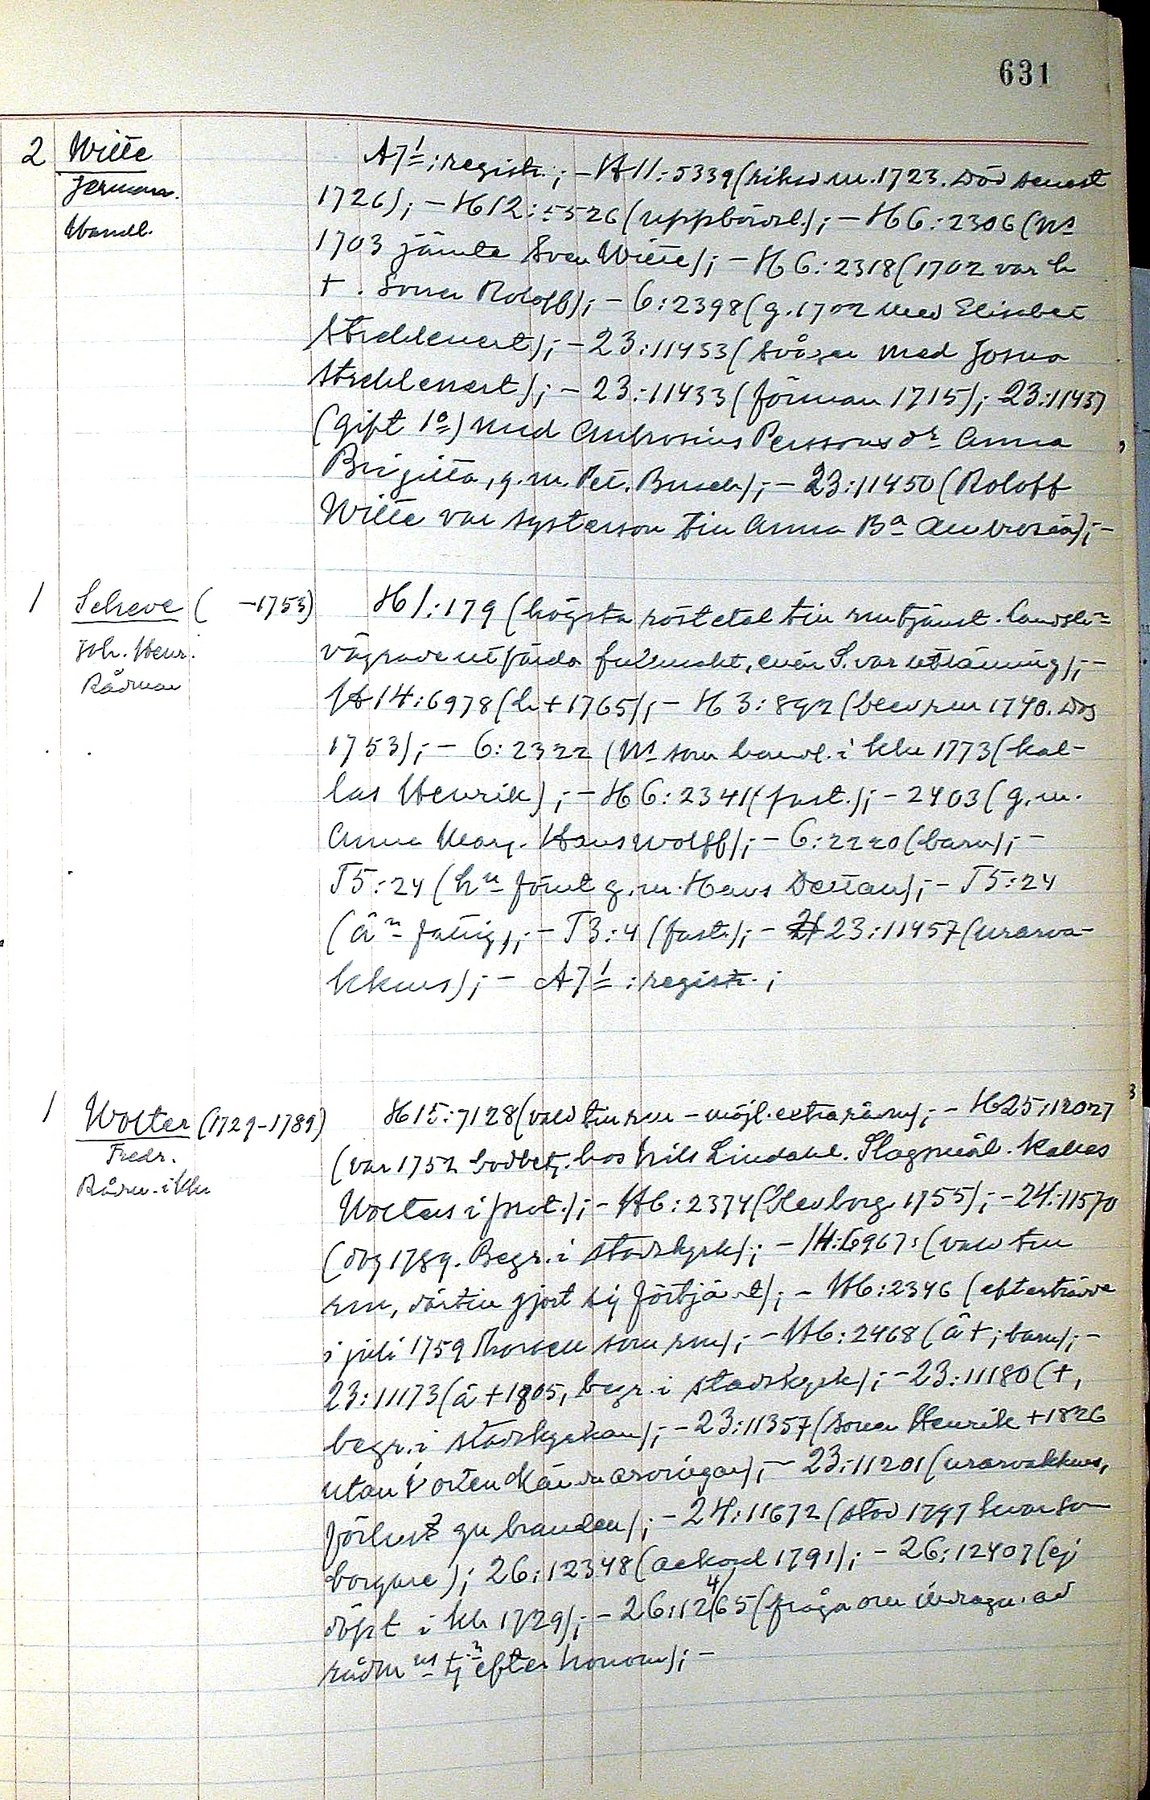 631
2 Witte A7 1: registr.; - H11: 5339 (riksdm. 1723. Död senast
Jermann. 1726); - H12: 5526 (uppbördsl.); - H6: 2306 (Ns
Handl. 1703 jämte Sven Witte); - H6: 2318 (1702 var h
+. Sonen Roloff); - 6: 2398 (g. 1702 med Elisabet
Strehlenert); - 23: 11433 (svåger med Josua
Strehlenert); - 23: 11433 (förman 1715); 23: 11437
(gift 1o) med Ambrosius Perssons dr Anna
Brigitta, g. m. Pet. Busch); - 23: 11450 (Roloff
Witte var systerson till Anna Ba Ambrosia); -
1 Scheve ( -1753) H1: 179 (högsta röstetal till rmtjänst. Landsh=
Joh. Henr. vägrade utfärda fullmakt, enär S. var utlänning); -
Rådman H14: 6978 (h + 1765); - H3: 892 (blev rm 1740. Dog
1753); - 6: 2322 (Ns som handl. i khn 1773 (kal-
las Henrik); - H6: 2341 (fast.); - 2403 (g. m.
Anna Marg. Hans Wolff); - 6: 2220 (barn); -
T5: 24 (hn förut g. m. Hans Dettau); - T5: 24
(ân fattig); - T3: 4 (fast.); - 23: 11457 (urarva-
kkurs); - A7 1: registr.;
1 Wolter (1729-1789) H15: 7128 (vald till rm - möjl. extra rådm); - H25: 12027
Fredr. (var 1752 bodbetj. hos Nils Lindahl. Slagsmål. Kallas
Rådm. i Khn Wolters i prot.); - H6: 2374 (blev borg. 1755); - 24: 11570
(dog 1789. Begr. i stadskyrk); - 14: 6967: (vald till
rm, därtill gjort sig förtjänt); - H6: 2346 (efterträdde
i juli 1759 som rm); - H6: 2468 (â +; barn); -
23: 11173 (â + 1805, begr. i stadskyrk); - 23: 11180 (+,
begr. i stadskyrkan); - 23: 11357 (sonen Henrik + 1826
utan i orten kända arvingar); - 23: 11201 (urarvakkurs,
förlust gm branden); - 24: 11672 (stod 1797 kvar som
borgare); 26: 12348 (ackord 1791); - 26: 12407 (ej
döpt i khn 1729); - 26: 12465 (fråga om indragn. av
rådmns tjn efter honom); -